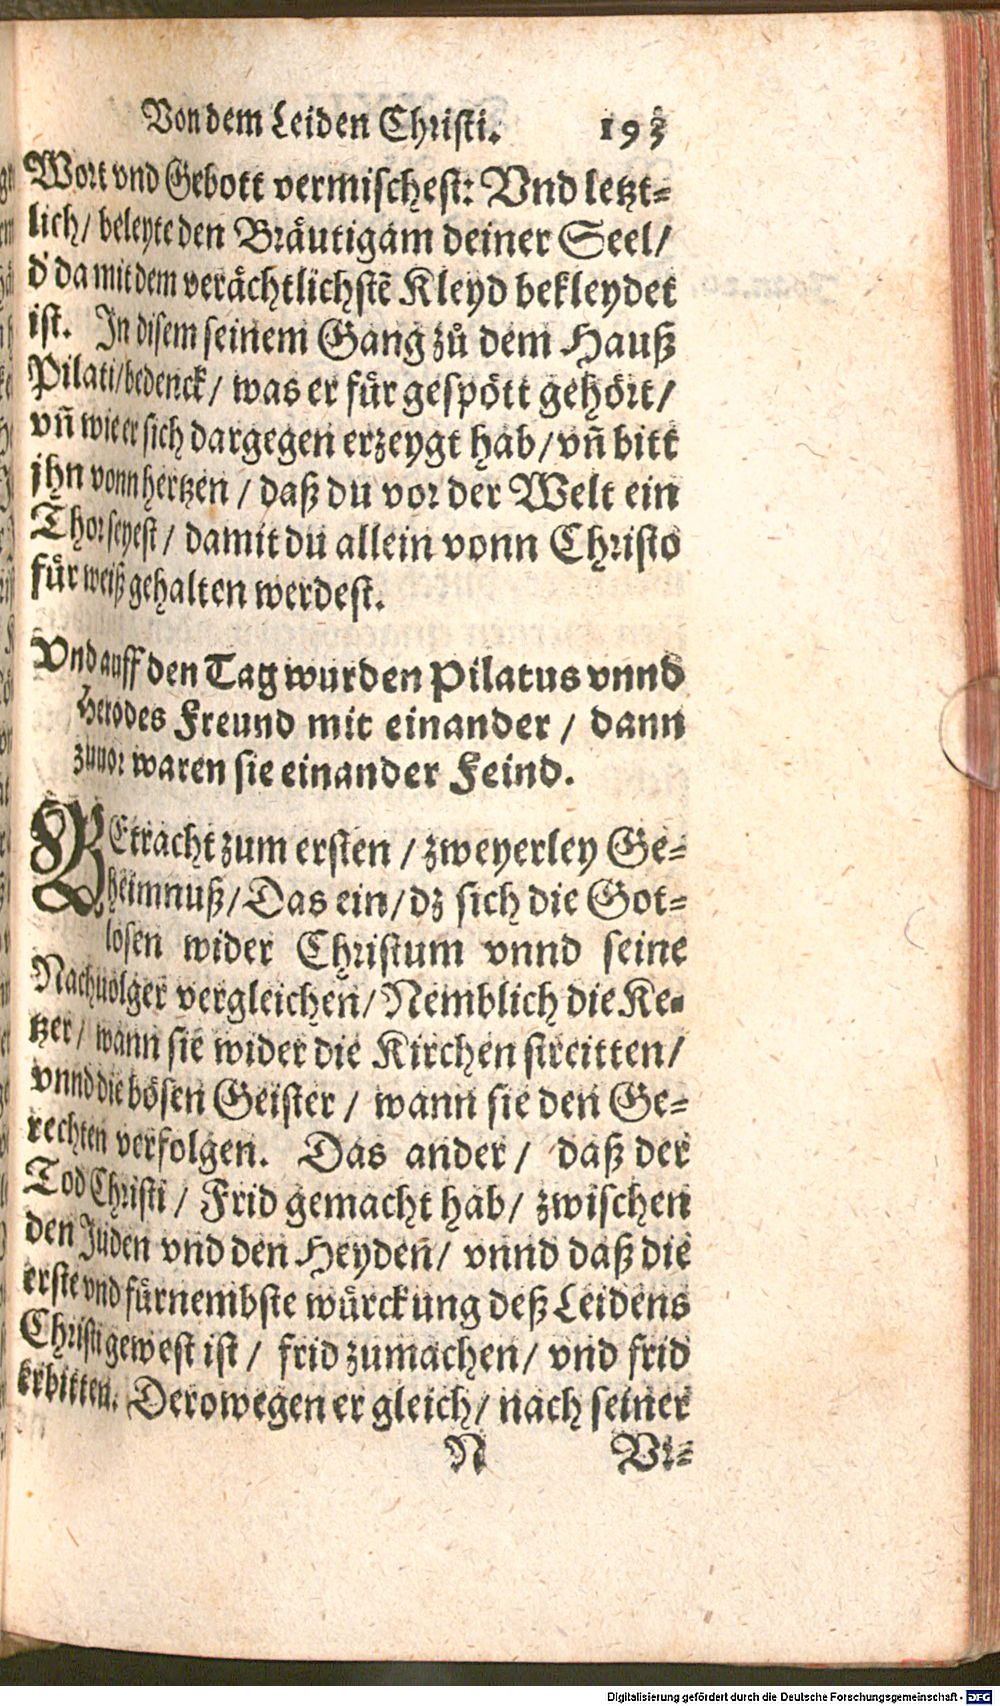 Von dem Leiden Christi. 193
Wort vnd Gebott vermischest: Vnd letzt⸗
lich / beleyte den Bräutigam deiner Seel /
d' da mit dem verächtlichstē Kleyd bekleydet
ist. In disem seinem Gang zů dem Hauß
Pilati / bedenck / was er für gespött gehört /
vñ wie er sich dargegen erzeygt hab / vñ bitt
jhn vonn hertzen / daß du vor der Welt ein
Thor seyest / damit du allein vonn Christo
für weiß gehalten werdest.
Vnd auff den Tag wurden Pilatus vnnd
Herodes Freund mit einander / dann
zuuor waren sie einander Feind.
BEtracht zum ersten / zweyerley Ge⸗
heimnuß / Das ein / dz sich die Got⸗
losen wider Christum vnnd seine
Nachuolger vergleichen / Nemblich die Ke⸗
tzer / wann sie wider die Kirchen streitten /
vnnd die bösen Geister / wann sie den Ge⸗
rechten verfolgen. Das ander / daß der
Tod Christi / Frid gemacht hab / zwischen
den Juden vnd den Heyden / vnnd daß die
erste vnd fürnembste würckung deß Leidens
Christi gewest ist / frid zumachen / vnd frid
erbitten. Derowegen er gleich / nach seiner
N Vi⸗
Digitalisierung gefördert durch die Deutsche Forschungsgemeinschaft - DFG